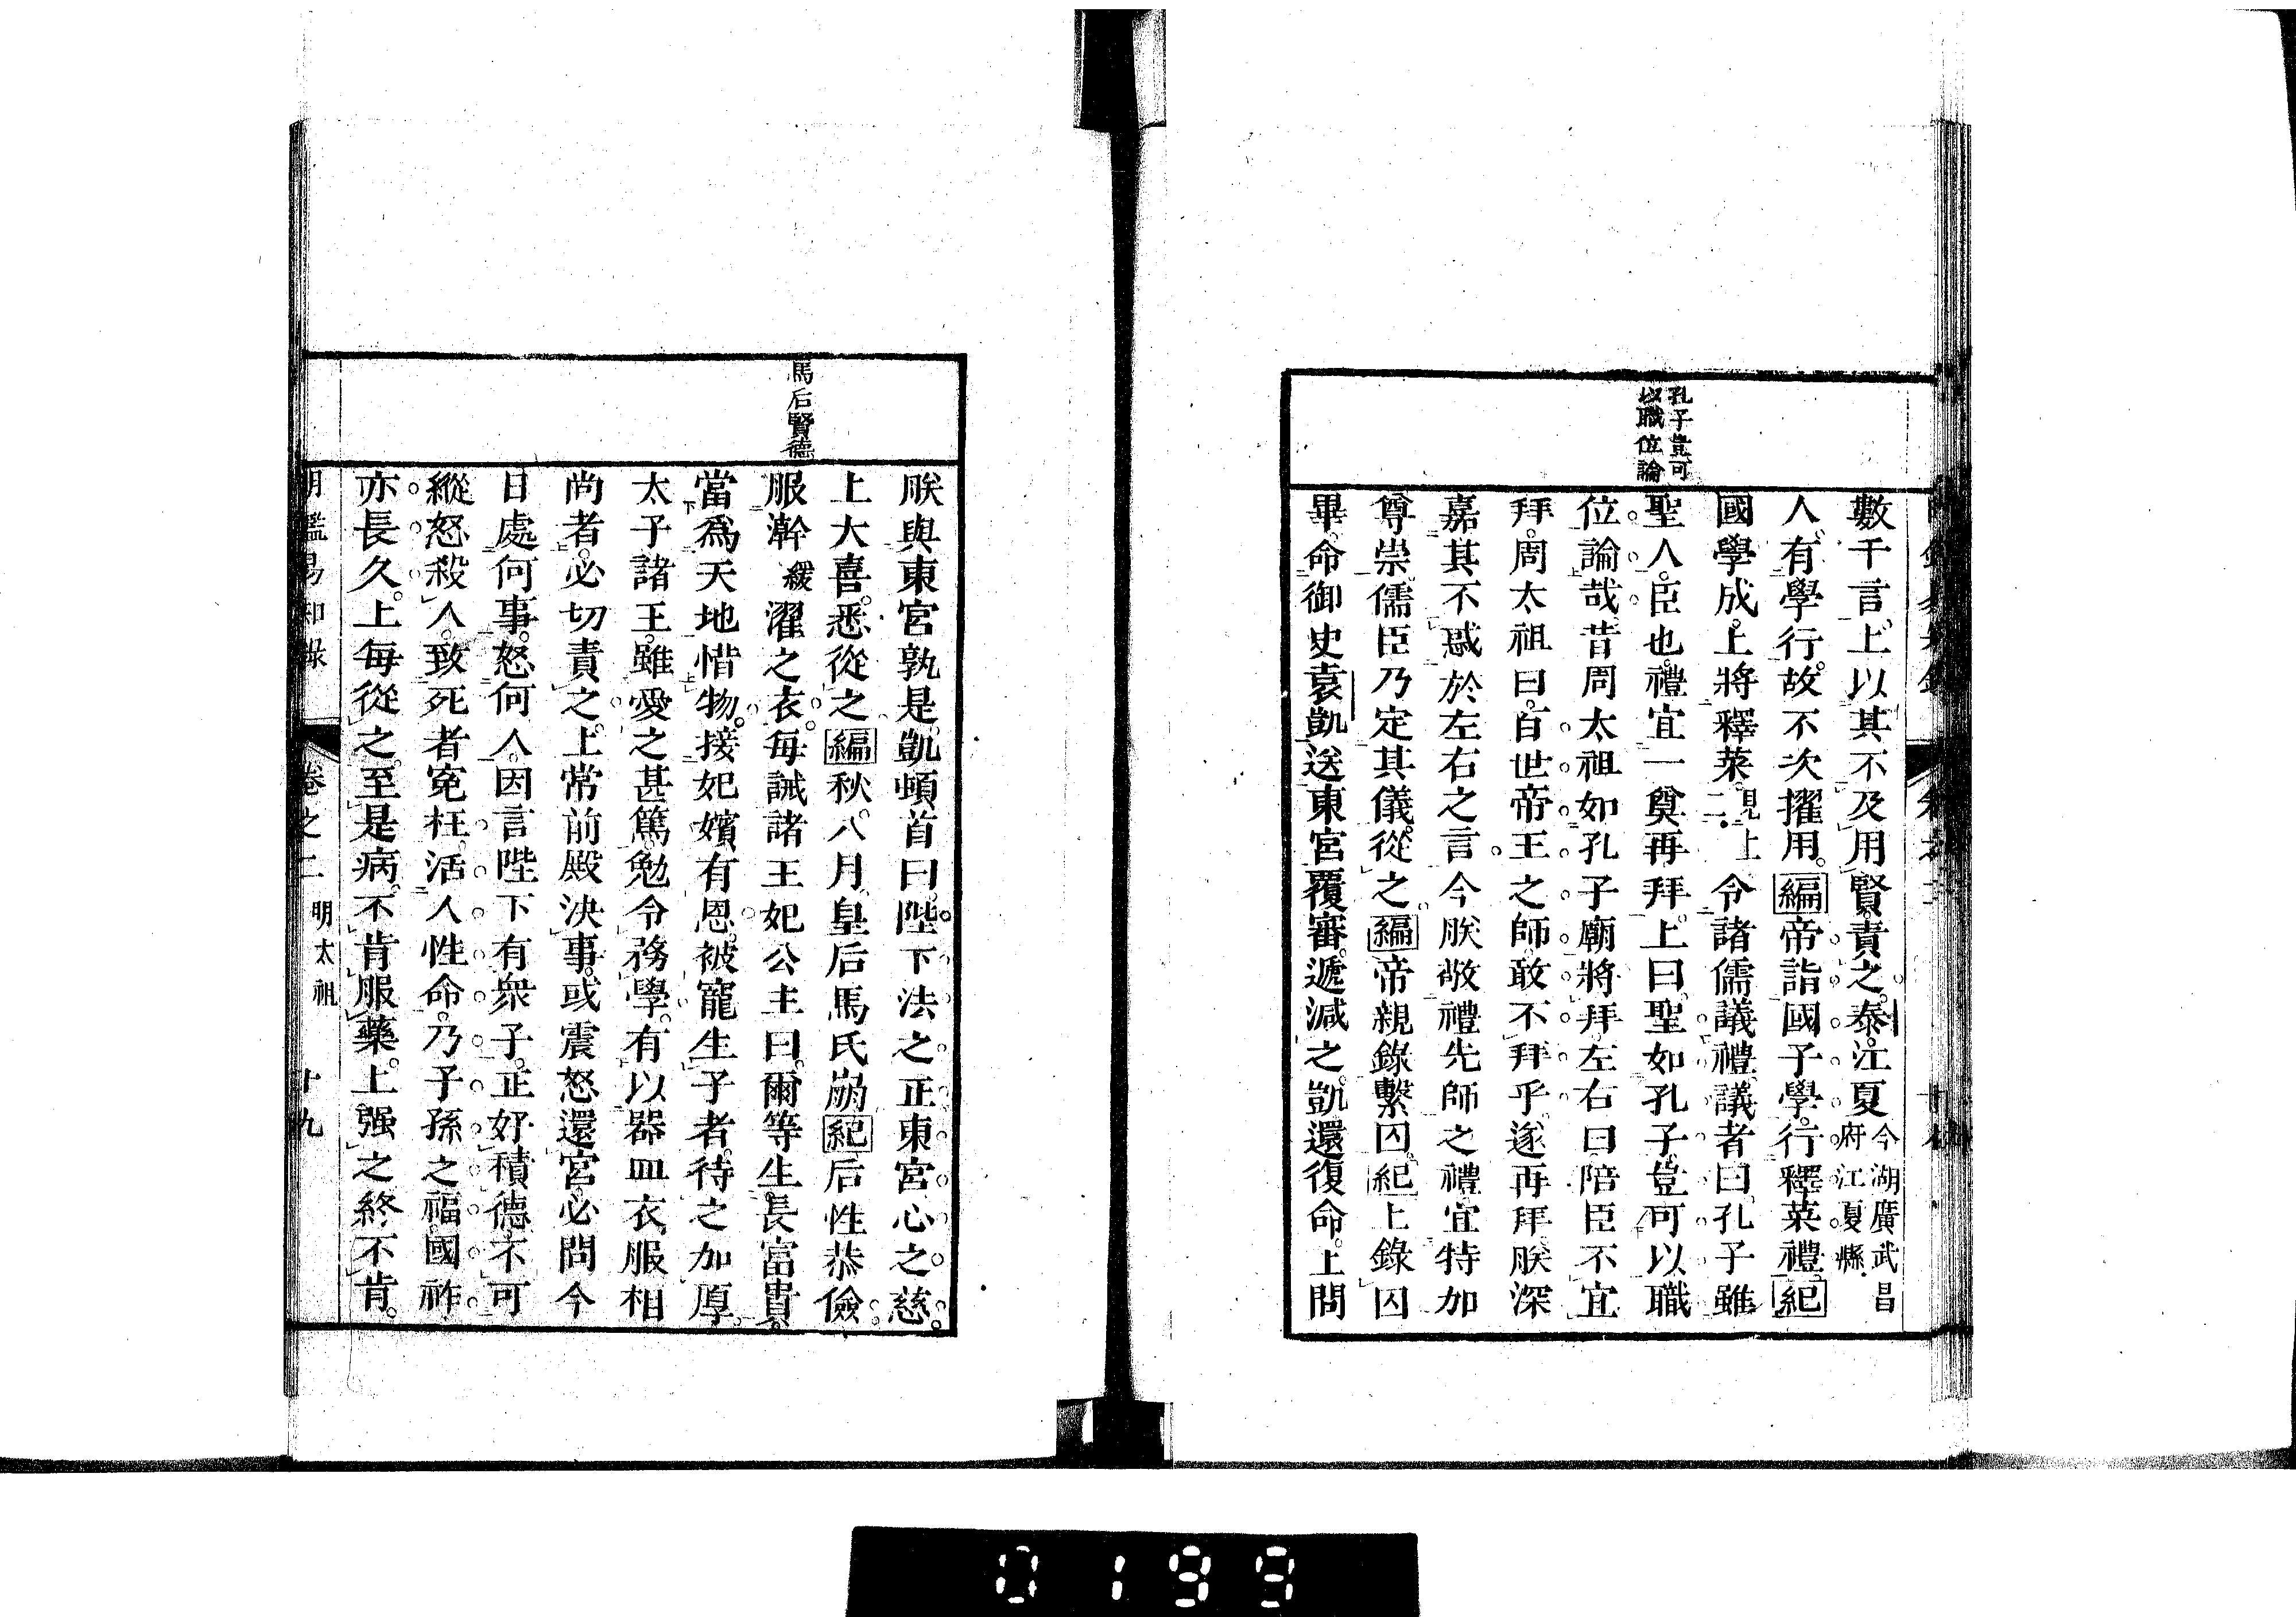 孔子豈可
以職位論
數千言。上以其不及用賢。責之。泰。江夏今湖廣武昌府江夏縣.
人。有學行。故不次擢用。編帝詣國子學。行釋菜禮。紀
國學成。上將釋菜見上二.令諸儒議禮。議者曰。孔子雖
聖人。臣也。禮宜一奠再拜。上曰。聖如孔子。豈可以職
位論哉。昔周太祖如孔子廟將拜。左右曰。陪臣不宜
拜。周太祖曰。百世帝王之師。敢不拜乎。遂再拜。朕深
嘉其不惑於左右之言。今朕敬禮先師之禮。宜特加
尊崇。儒臣乃定其儀。從之。編帝親錄繫囚。紀上錄囚
畢。命御史袁凱送東宮覆審。遞減之。凱還復命。上問
馬后賢德
朕與東宮孰是。凱頓首曰。陛下法之正。東宮心之慈。
上大喜。悉從之。編秋。八月。皇后馬氏崩。紀后性恭儉。
服澣緩濯之衣。每誡諸王妃公主曰。爾等生長富貴。
當爲天地惜物。接妃嬪有恩。被寵生子者。待之加厚。
太子諸王。雖愛之甚篤。勉令務學。有以器皿衣服相
尚者。必切責之。上常前殿決事。或震怒還宮。必問今
日處何事。怒何人。因言陛下有衆子。正好積德。不可
縱怒殺人。致死者寃枉。活人性命。乃子孫之福。國祚
亦長久。上每從之。至是病。不肯服藥。上强之。終不肯。
明鑑易知錄 卷之二 明太祖 十九
0199